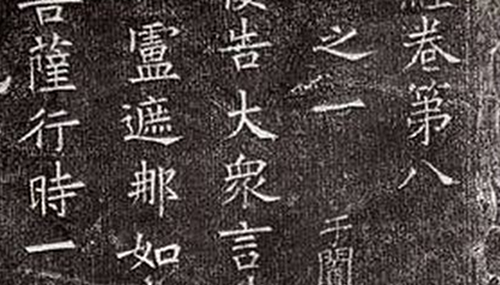 經卷第八
之一 于闐
復告大衆言
盧遮那如
菩薩行時一